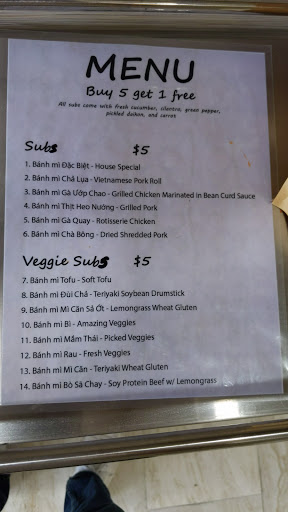 MENU
Buy 5 get 1 free
All subs come with fresh cucumber, cilantro, green pepper,
pickled daikon, and carrot
Subs $5
1. Bánh mì Đặc Biệt - House Special
2. Bánh mì Chả Lụa - Vietnamese Pork Roll
3. Bánh mì Gà Ướp Chao - Grilled Chicken Marinated in Bean Curd Sauce
4. Bánh mì Thịt Heo Nướng - Grilled Pork
5. Bánh mì Gà Quay - Rotisserie Chicken
6. Bánh mì Chà Bông - Dried Shredded Pork
Veggie Subs $5
7. Bánh mì Tofu - Soft Tofu
8. Bánh mì Đùi Chả - Teriyaki Soybean Drumstick
9. Bánh mì Mì Căn Sả Ớt - Lemongrass Wheat Gluten
10. Bánh mì Bì - Amazing Veggies
11. Bánh mì Mắm Thái - Picked Veggies
12. Bánh mì Rau - Fresh Veggies
13. Bánh mì Mì Căn - Teriyaki Wheat Gluten
14. Bánh mì Bò Sả Chay - Soy Protein Beef w/ Lemongrass